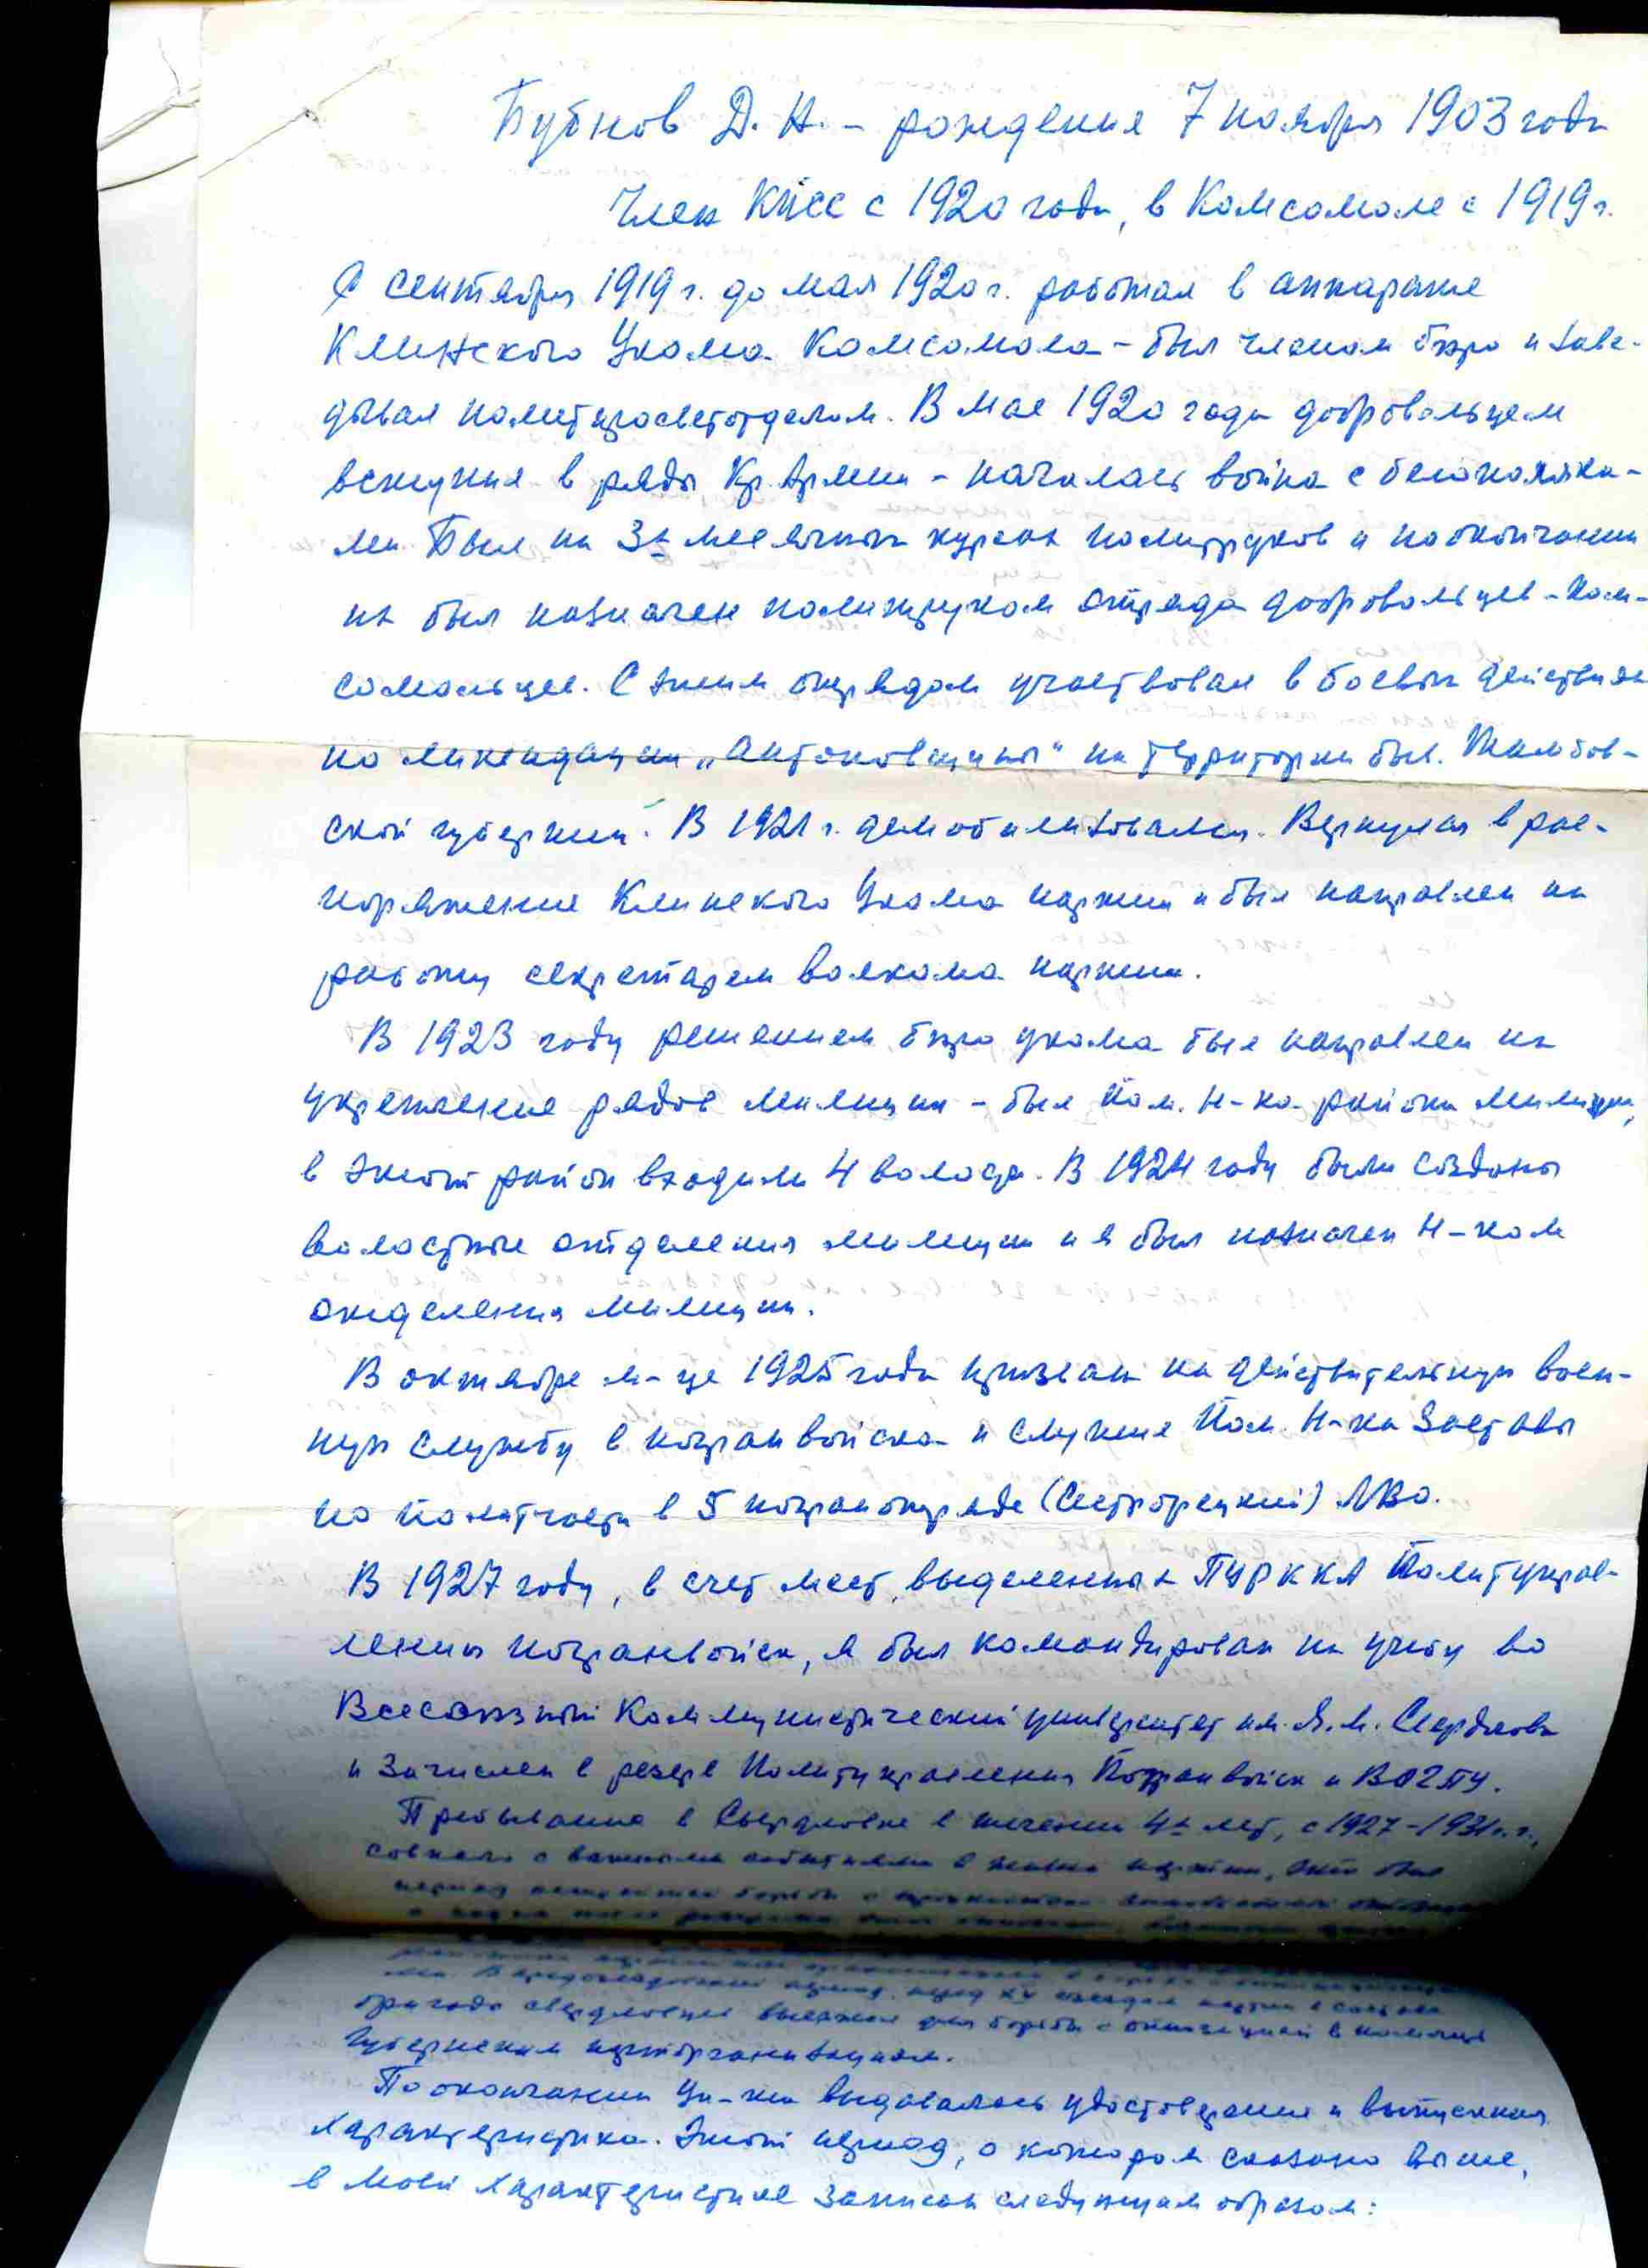 Бубнов Д. Н. – рождения 7 ноября 1903 года
Член КПСС с 1920 года, в Комсомоле с 1919 г.
С сентября 1919 г. до мая 1920 г. работал в аппарате
Клинского Укома Комсомола – был членом бюро и заве-
дывал политпросветотделом. В мае 1920 года добровольцем
вступил в ряды Кр. Армии – началась война с белополяка-
ми. Был на 3х месячных курсах политруков и по окончании
их был назначен политруком отряда добровольцев-ком-
сомольцев. С этим отрядом участвовал в боевых действиях
по ликвидации „антоновщины" на территории быв. Тамбов-
ской губернии. В 1921 г. демобилизовался. Вернулся в рас-
поряжение Клинского Укома партии и был направлен на
работу секретарем волкома партии.
В 1923 году решением бюро укома был направлен на
укрепление рядов милиции – был пом. Н-ка района милиции,
в этот район входили 4 волости. В 1924 году были созданы
волостные отделения милиции и я был назначен Н-ком
отделения милиции.
В октябре м-це 1925 года призван на действительную воен-
ную службу в погранвойска и служил Пом. Н-ка Заставы
по политчасти в 5 погранотряде (Сестрорецкий) ЛВО.
В 1927 году, в счет мест, выделенных ПУРККА Политуправ-
лению погранвойск, я был командирован на учебу во
Всесоюзный Коммунистический университет им. Я. М. Свердлова
и зачислен в резерв Политуправления Погранвойск и ВОГПУ.
Пребывание в Свердловке в течении 4х лет, с 1927-1931 г.г.,
совпало с важными событиями в жизни партии, это был
период борьбы с
ми. В предсъездовский период, перед XV съездом партии в составе
бригады свердловцев выезжал для борьбы с оппозицией в помощь
губернским парторганизациям.
По окончании Ун-та выдавалось удостоверение и выпускная
характеристика. Этот период, о котором сказано выше,
в моей характеристике записан следующим образом: